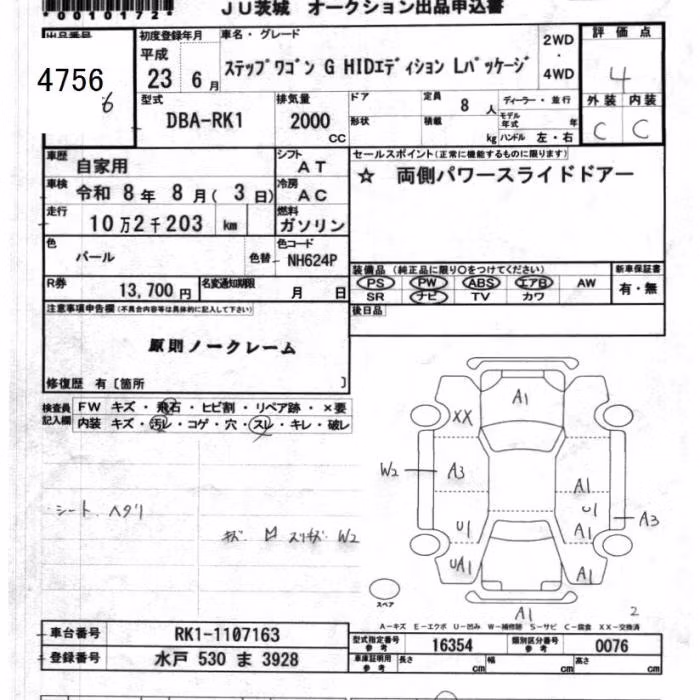 *0010172*
JU茨城 オークション出品申込書
出品番号
4756
6
初度登録年月
平成
23 6月
車名・グレード
ステップワゴン G HIDエディション Lパッケージ
2WD
・
4WD
評価点
4
外装 内装
C C
型式
DBA-RK1
排気量
2000
CC
ドア
形状
定員
8 人
積載
kg
ディーラー・並行
モデル年式 年
ハンドル 左・右
車歴
自家用
シフト
AT
車検
令和 8年 8月( 3日)
冷房
AC
走行
10万2千203 km
燃料
ガソリン
色
パール
色替
色コード
NH624P
R券
13,700円
名変通知期限
月 日
セールスポイント(正常に機能するものに限ります)
☆ 両側パワースライドドアー
装備品(純正品に限り○をつけてください)
PS PW ABS エアB AW
SR ナビ TV カワ
新車保証書
有・無
後日品
注意事項申告欄(不具合内容等は具体的に記入して下さい)
原則ノークレーム
修復歴 有〔箇所 〕
検査員記入欄
FW キズ・飛石・ヒビ割・リペア跡・×要
内装 キズ・汚レ・コゲ・穴・スレ・キレ・破レ
シート ヘタリ
W2
A1
XX
W2
A3
A1
U1
U1
A1
A3
UA1
A1
A1
2
スペア
A-キズ E-エクボ U-凹み W-補修跡 S-サビ C-腐食 XX-交換済
車台番号
RK1-1107163
登録番号
水戸 530 ま 3928
型式指定番号
参考
16354
類別区分番号
参考
0076
車庫証明用
参考
長さ cm
幅 cm
高さ cm